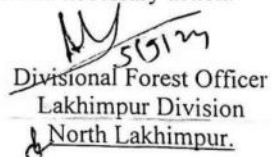 5/9/23
Divisional Forest Officer
Lakhimpur Division
North Lakhimpur.